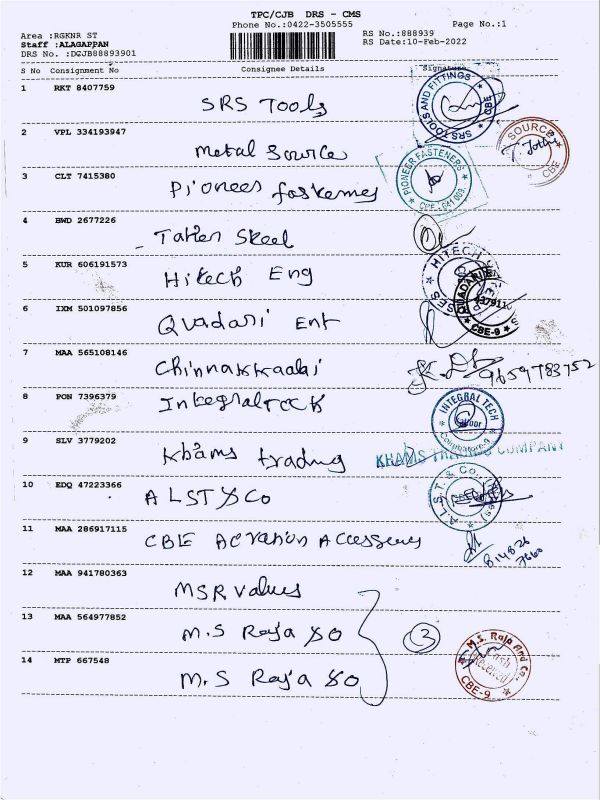 TPC/CJB DRS - CMS
Phone No.:0422-3505555
Page No.:1
Area :RGKNR ST
Staff :ALAGAPPAN
DRS No. :DGJB88893901
RS No.:888939
RS Date:10-Feb-2022
S No Consignment No Consignee Details Signature
1 RKT 8407759 SRS Tools
SRS TOOLS AND FITTINGS CBE
2 VPL 334193947 Metal Source
SOURCE CBE
3 CLT 7415380 Pioneer fasteners
PIONEER FASTENERS CBE - 641 009
4 BWD 2677226 Steel
5 KUR 606191573 Hitech Eng
HITECH
6 IXM 501097856 Quadari Ent
QUADARI EN CBE-9
7 MAA 565108146 Chinnakkaalai
9659783752
8 PON 7396379 Integral Tech
INTEGRAL TECH Coimbatore-9
9 SLV 3779202 Khams trading
KHAMS TRADING COMPANY
10 EDQ 47223366 ALST & Co
A.L.S.T. & Co.
11 MAA 286917115 CBE
12 MAA 941780363 MSR Values
13 MAA 564977852 M.S Raja & Co
3
14 MTP 667548 M.S Raja & Co
M.S. Raja And Co. Cash Received CBE-9